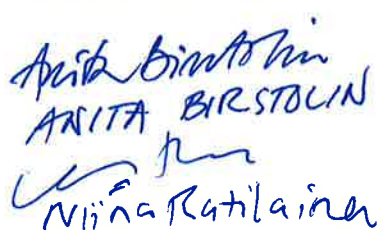 Anita Birstolin
ANITA BIRSTOLIN
Niina Ratilainen